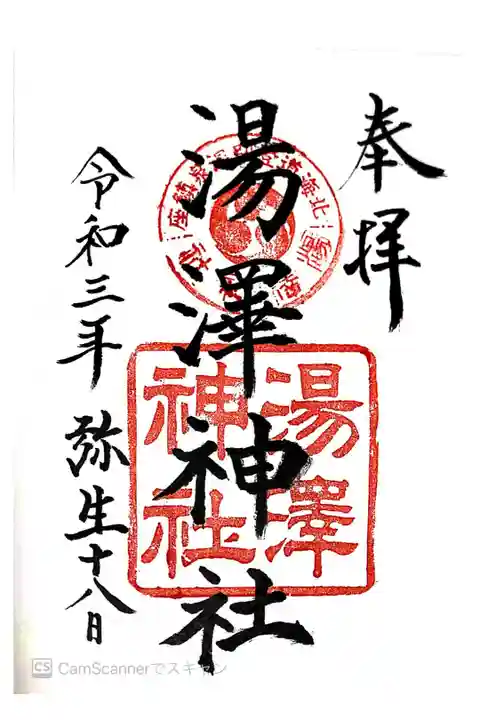 奉拝
湯澤神社
湯澤
神社
令和三年 弥生十八日
CS CamScannerでスキャン